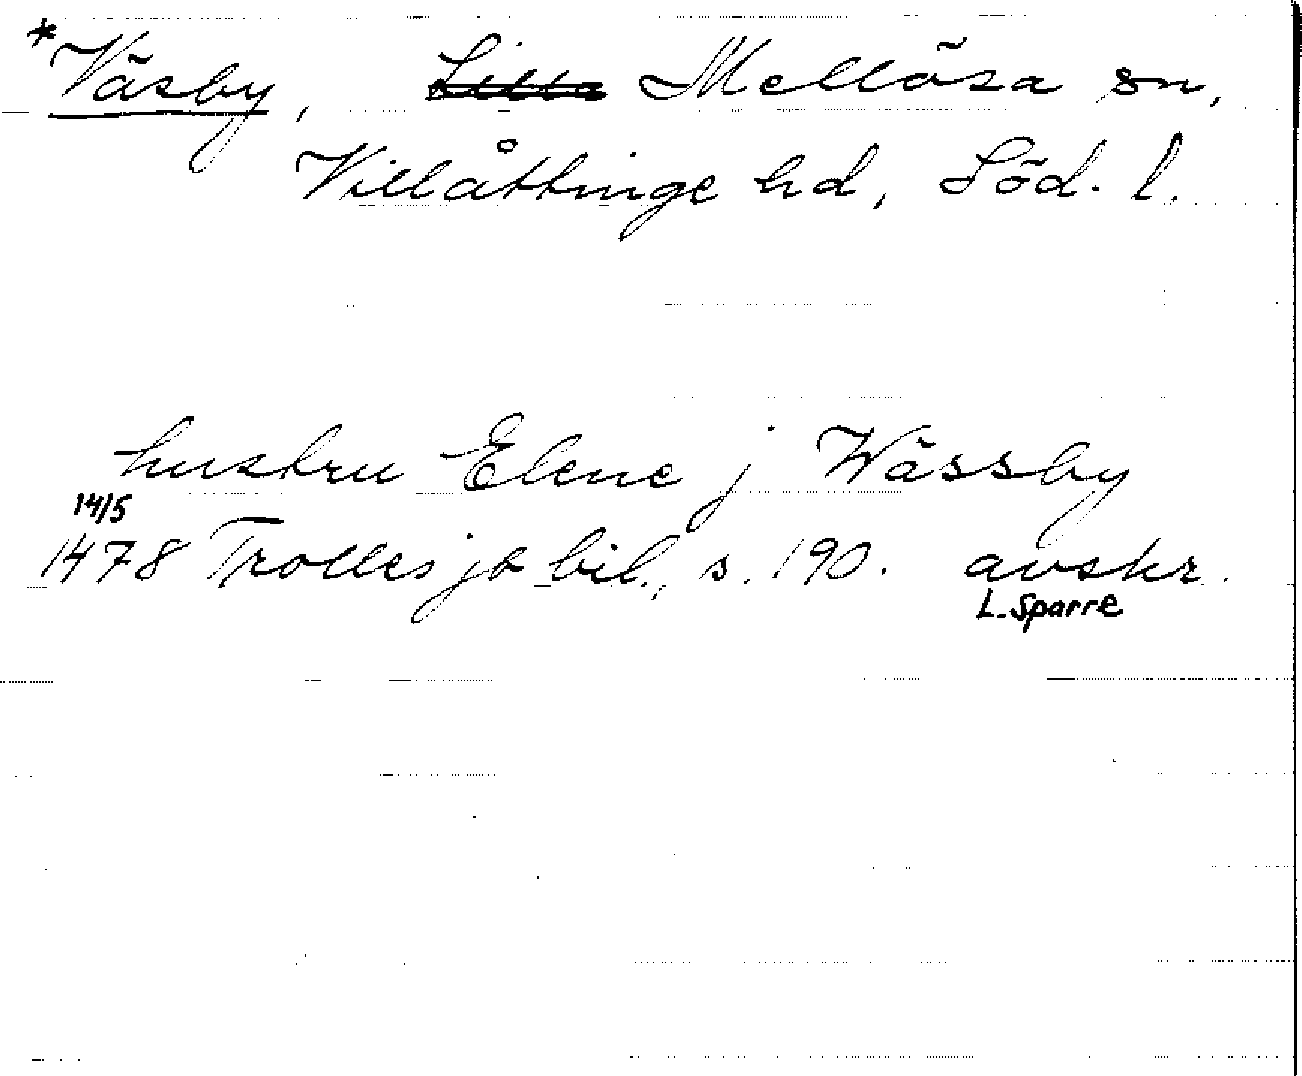 *Väsby, Lilla Mellösa sn,
Villåttinge hd, Söd. l.
hustru Elene j Wässby
14/5
1478 Trolles jb bil., s. 190. avskr.
L. Sparre